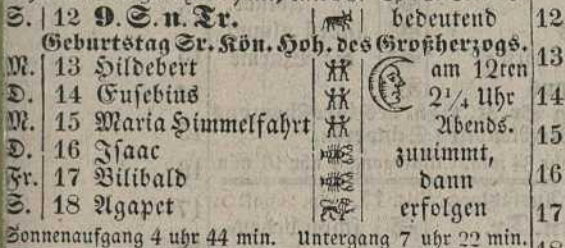 S. 12 9. S. n. Tr. bedeutend 12
Geburtstag Sr. Kön. Hoh. des Großherzogs.
M. 13 Hildebert am 12ten 13
D. 14 Eusebius 2 1/4 Uhr 14
M. 15 Maria Himmelfahrt Abends. 15
D. 16 Isaac zunimmt,
Fr. 17 Bilibald dann 16
S. 18 Agapet erfolgen 17
Sonnenaufgang 4 uhr 44 min. Untergang 7 uhr 22 min.